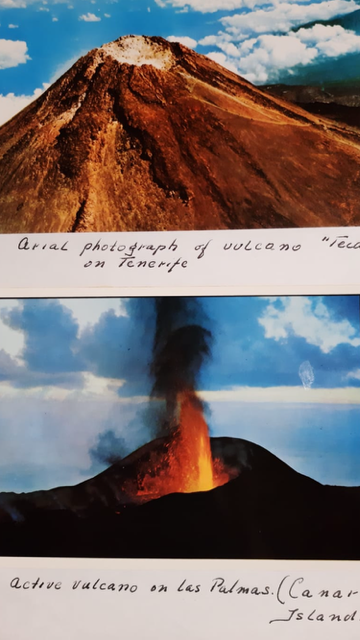 Arial photograph of vulcano
on Tenerife
Active vulcano on las Palmas. (Canar
Island